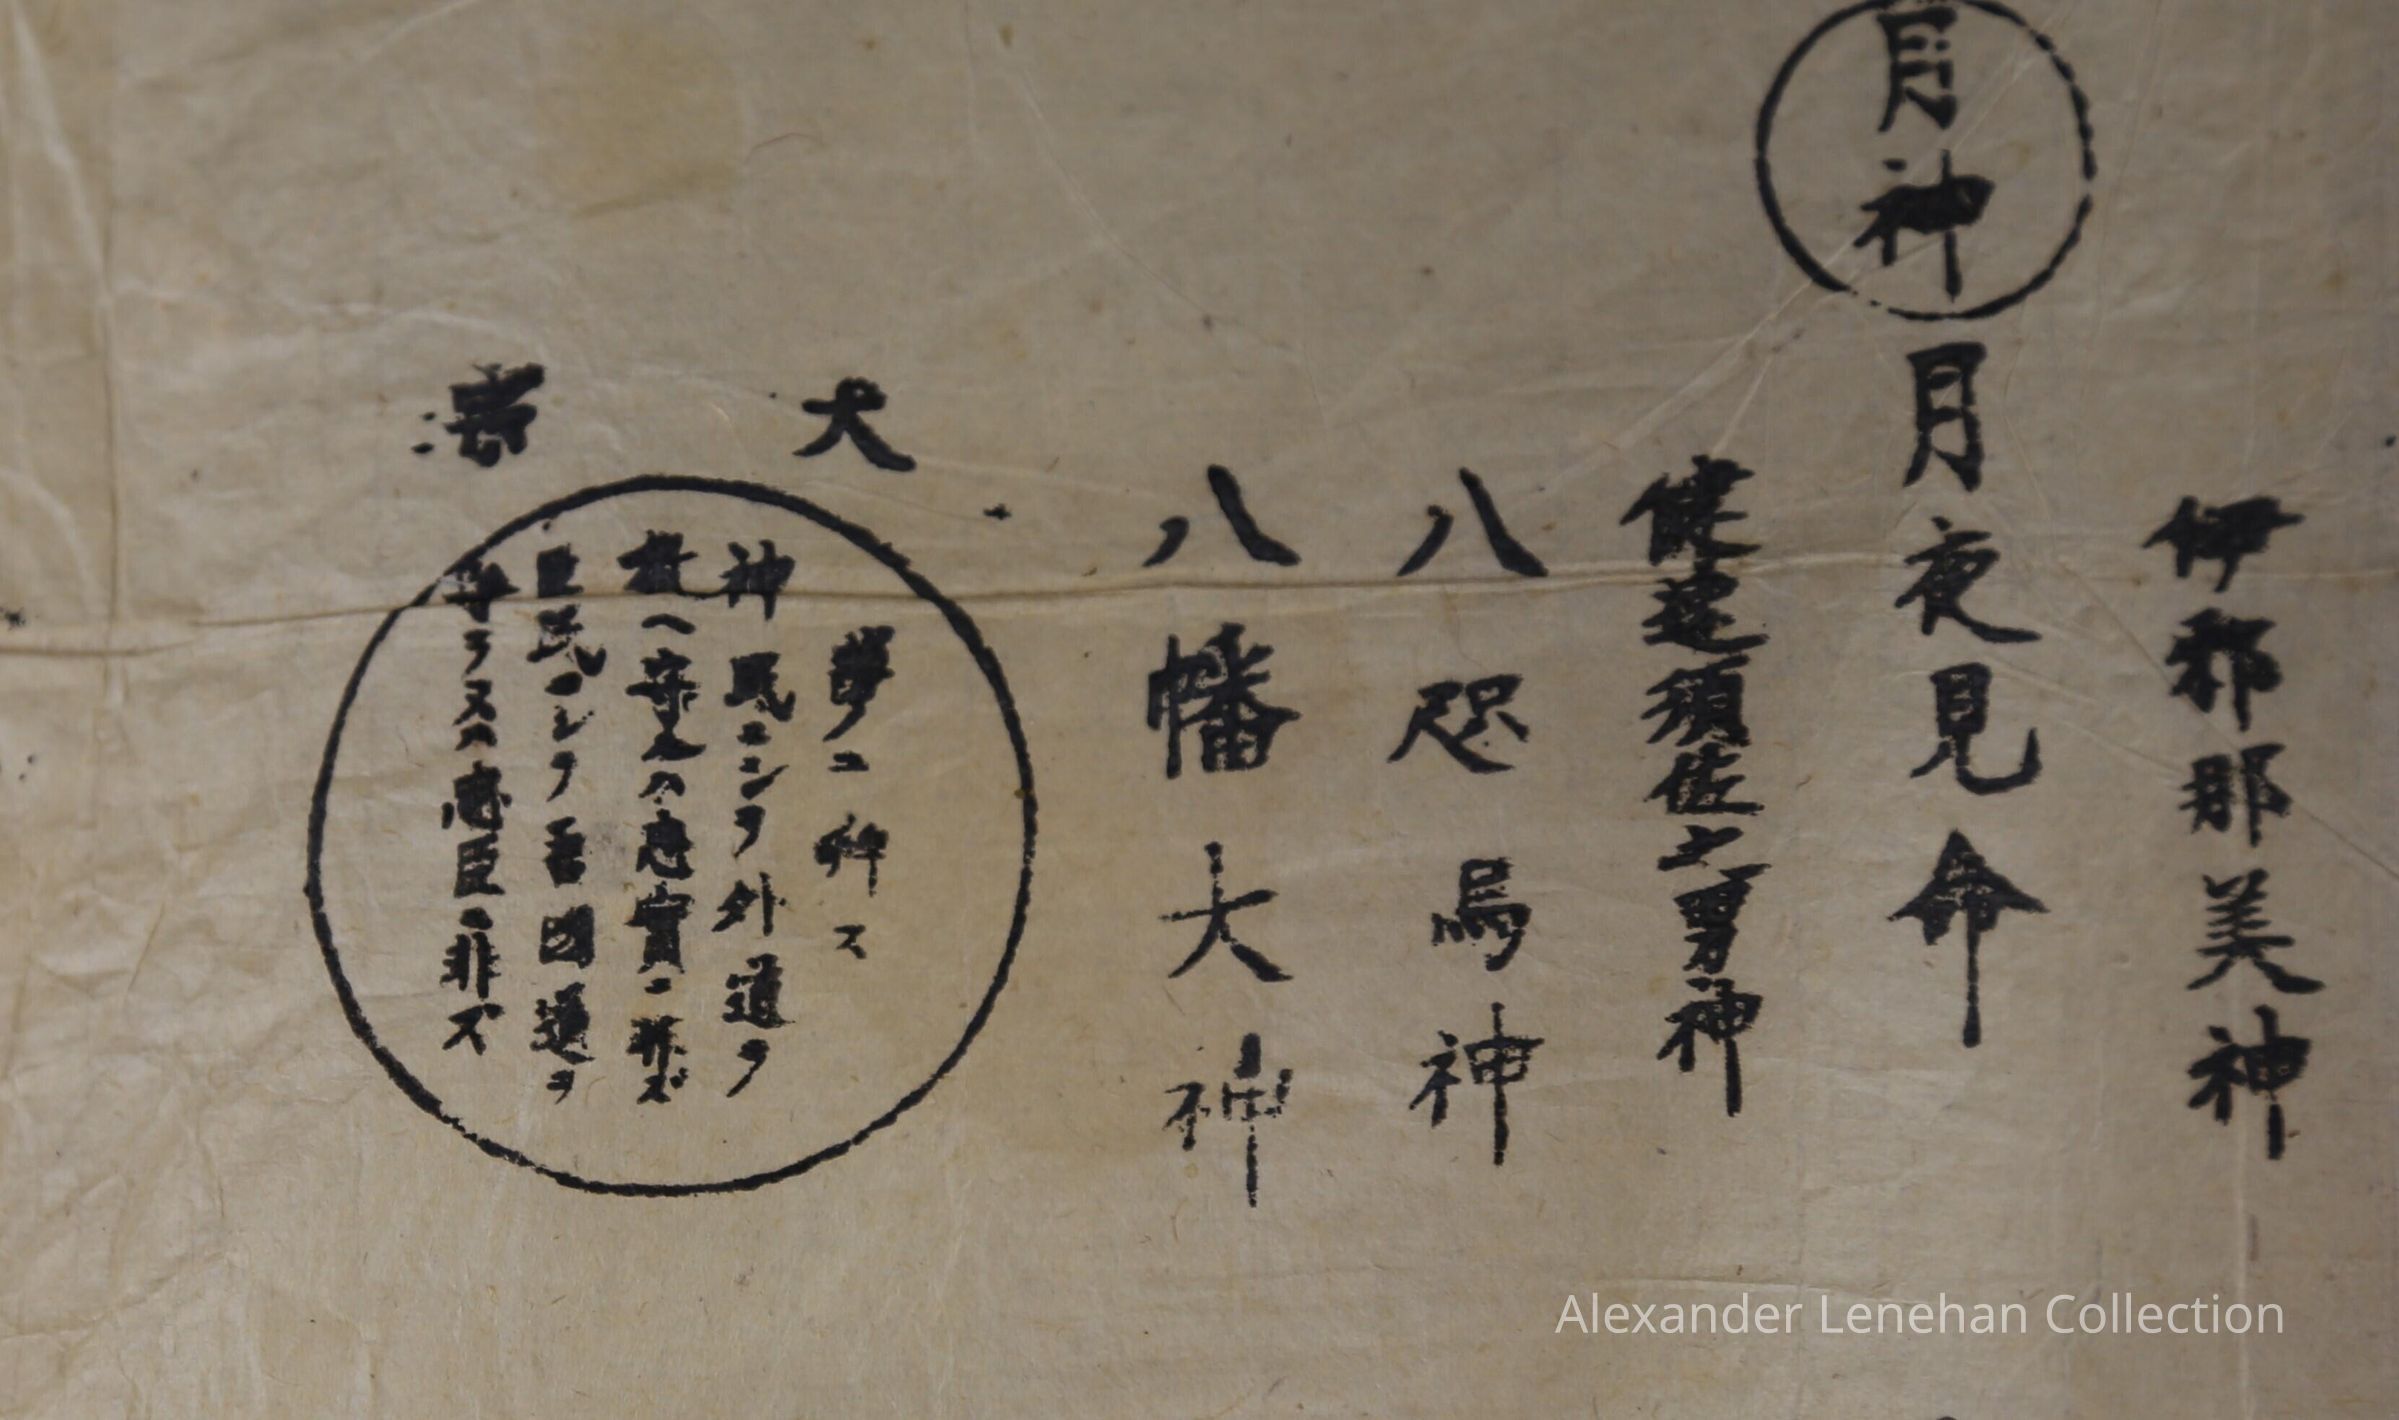 伊邪那美神
月神
月夜見命
健速須佐之男神
八咫烏神
八幡大神
犬
夢ニ
神民ニシテ外道ヲ
教ヘ守ルハ忠實ニ非ズ
臣民ニシテ吾國道ヲ
守ラヌハ忠臣ニ非ズ
Alexander Lenehan Collection